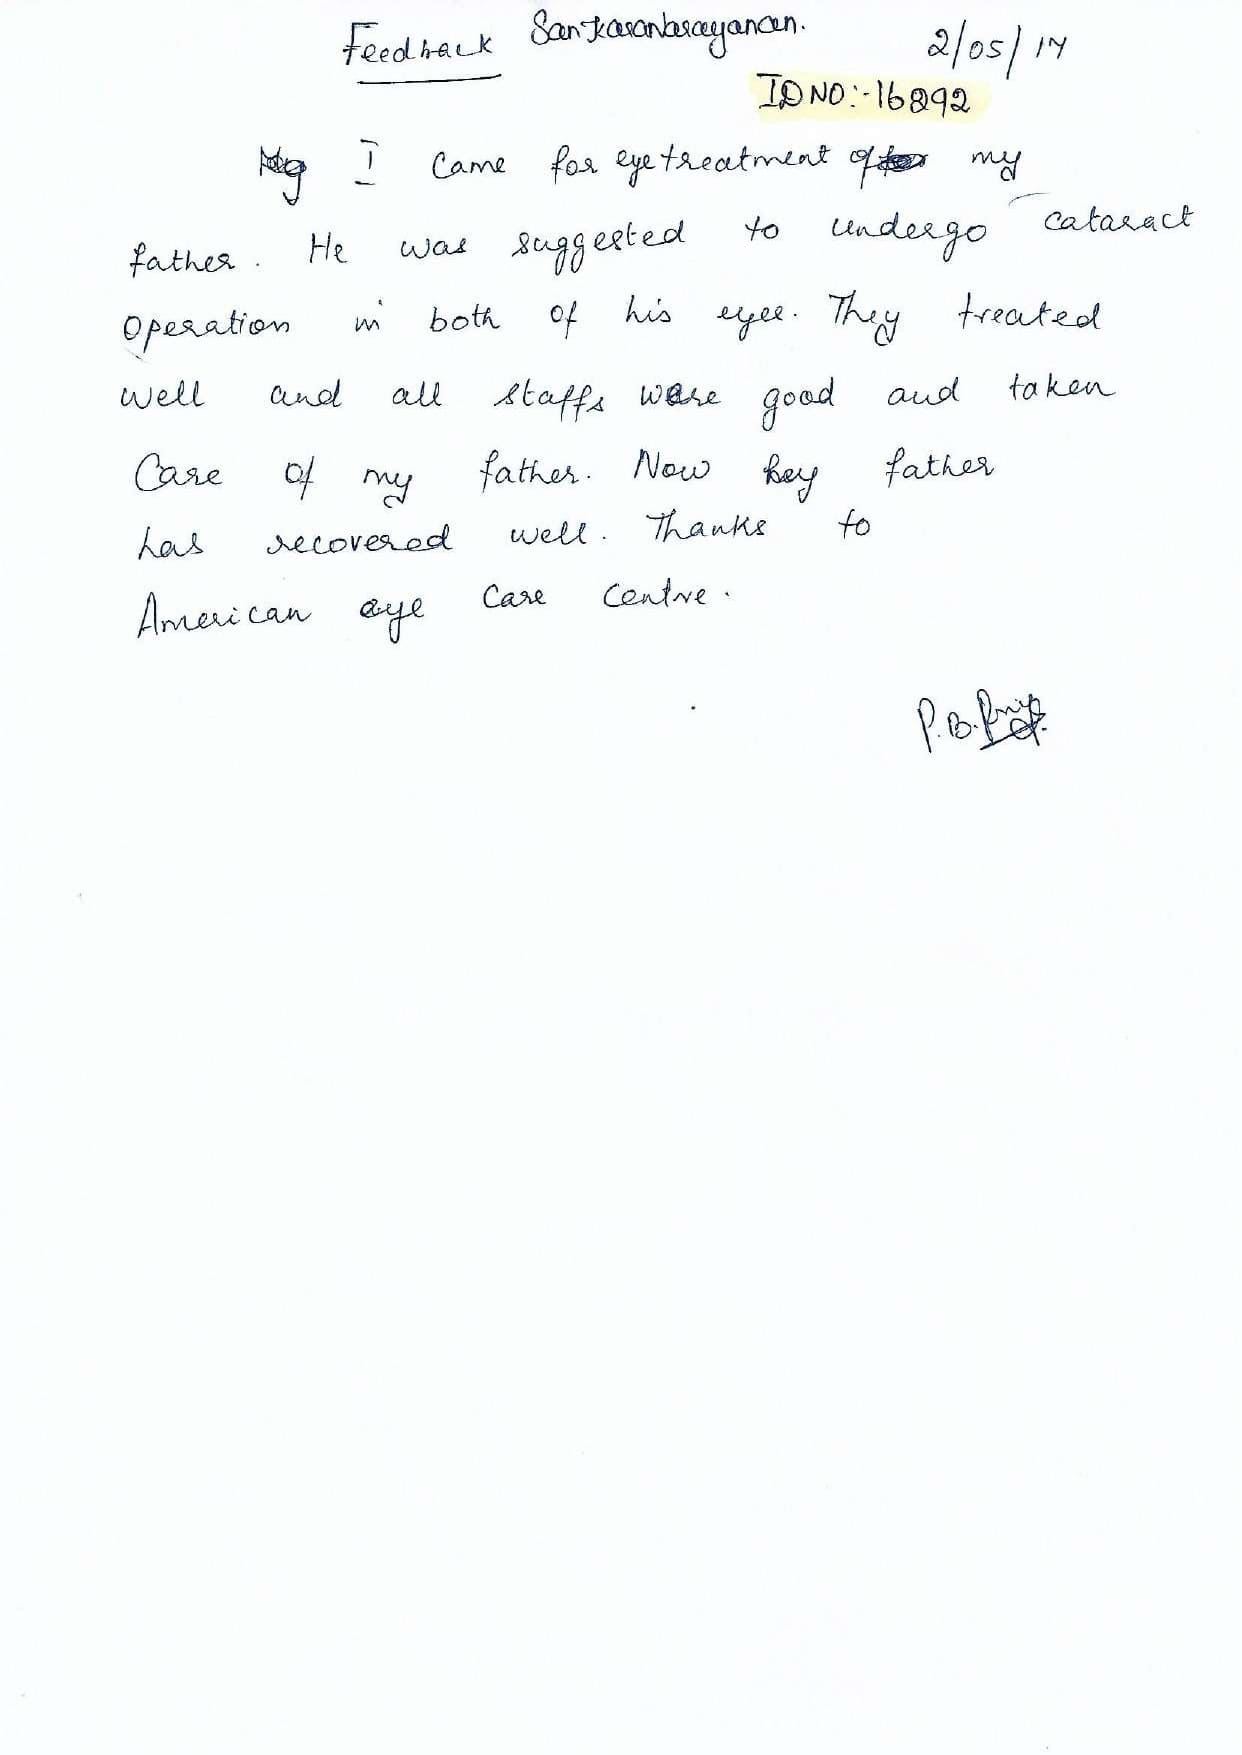 Feedback Sankaranarayanan. 2/05/17
ID NO:-16892
I came for eye treatment of my
father. He was suggested to undergo cataract
operation in both of his eyes. They treated
well and all staffs were good and taken
care of my father. Now my father
has recovered well. Thanks to
American eye care centre.
P.B.